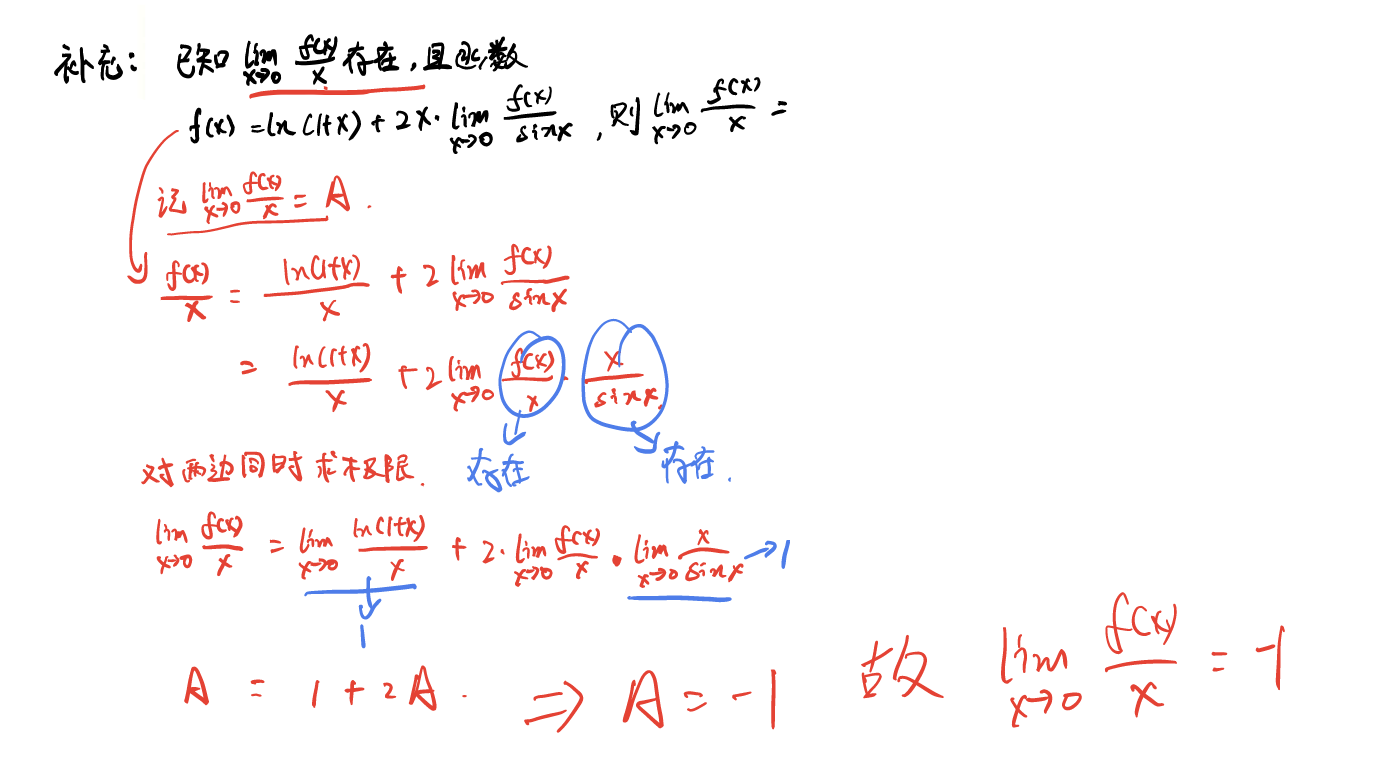 补充: 已知 lim x→0 f(x)/x 存在,且函数
f(x) = ln(1+x) + 2x· lim x→0 f(x)/sinx , 则 lim x→0 f(x)/x =
记 lim x→0 f(x)/x = A .
f(x)/x = ln(1+x)/x + 2 lim x→0 f(x)/sinx
= ln(1+x)/x + 2 lim x→0 f(x)/x · x/sinx.
对两边同时求极限. 存在 存在.
lim x→0 f(x)/x = lim x→0 ln(1+x)/x + 2· lim x→0 f(x)/x · lim x→0 x/sinx → 1
1
A = 1 + 2A . ⇒ A = -1 故 lim x→0 f(x)/x = -1